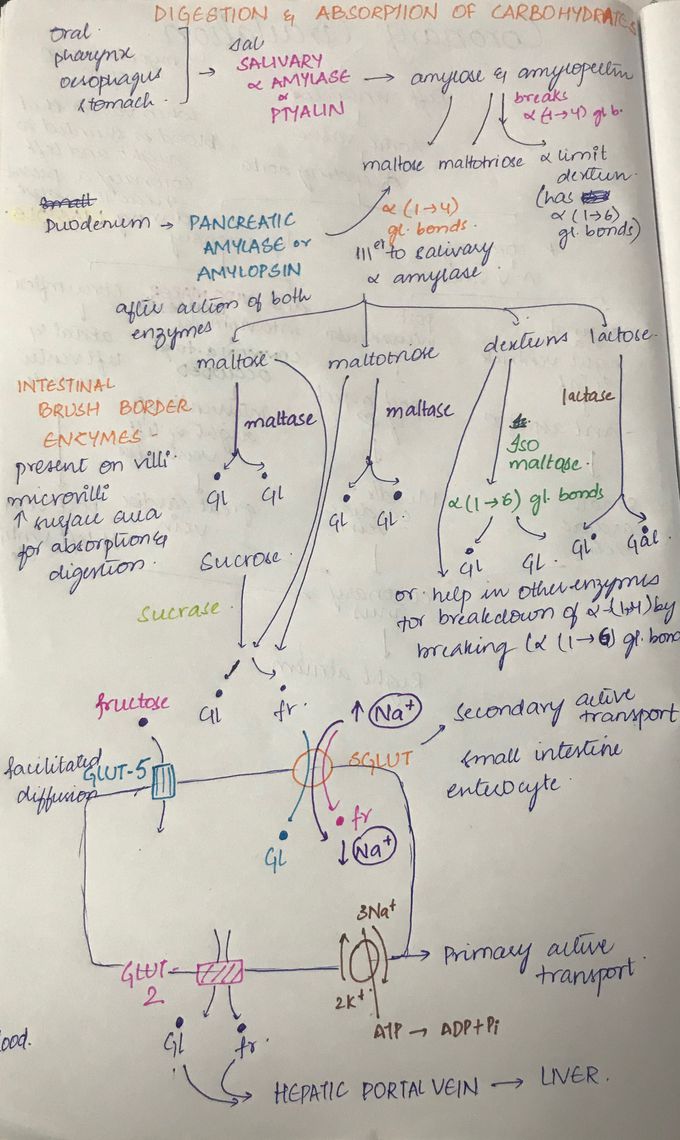 DIGESTION & ABSORPTION OF CARBOHYDRATES
Oral
pharynx
oesophagus
stomach
sal
SALIVARY
α AMYLASE
or
PTYALIN
amylose & amylopectin
breaks
α(1→4) gl b.
maltose maltotriose α limit
dextrin
(has
α(1→6)
gl. bonds)
Small
Duodenum → PANCREATIC
AMYLASE or
AMYLOPSIN
α(1→4)
gl. bonds
to salivary
α amylase
after action of both
enzymes
maltose
maltotriose
dextrins
lactose
INTESTINAL
BRUSH BORDER
ENZYMES -
present on villi
microvilli
↑ surface area
for absorption &
digestion.
maltase
maltase
lactase
Iso
maltase.
α(1→6) gl. bonds
Gl Gl
Gl Gl.
Gl Gl.
Gl Gal.
Sucrose
Sucrase.
or help in other enzymes
for breakdown of α-(1→4) by
breaking (α (1→6) gl. bond
Gl fr.
fructose
↑ Na+
secondary active
transport
facilitated
diffusion
GLUT-5
SGLUT
small intestine
enterocyte.
fr
Gl
↓ Na+
3Na+
GLUT-
2
2K+
Primary active
transport.
ATP → ADP+Pi
ood.
Gl fr.
HEPATIC PORTAL VEIN → LIVER.